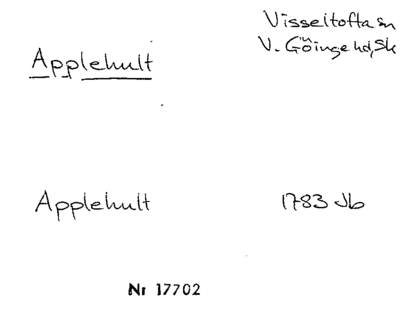 Visseltofta sn
Applehult
V. Göinge hd, Sk
Applehult 1783 Jb
Nr 17702